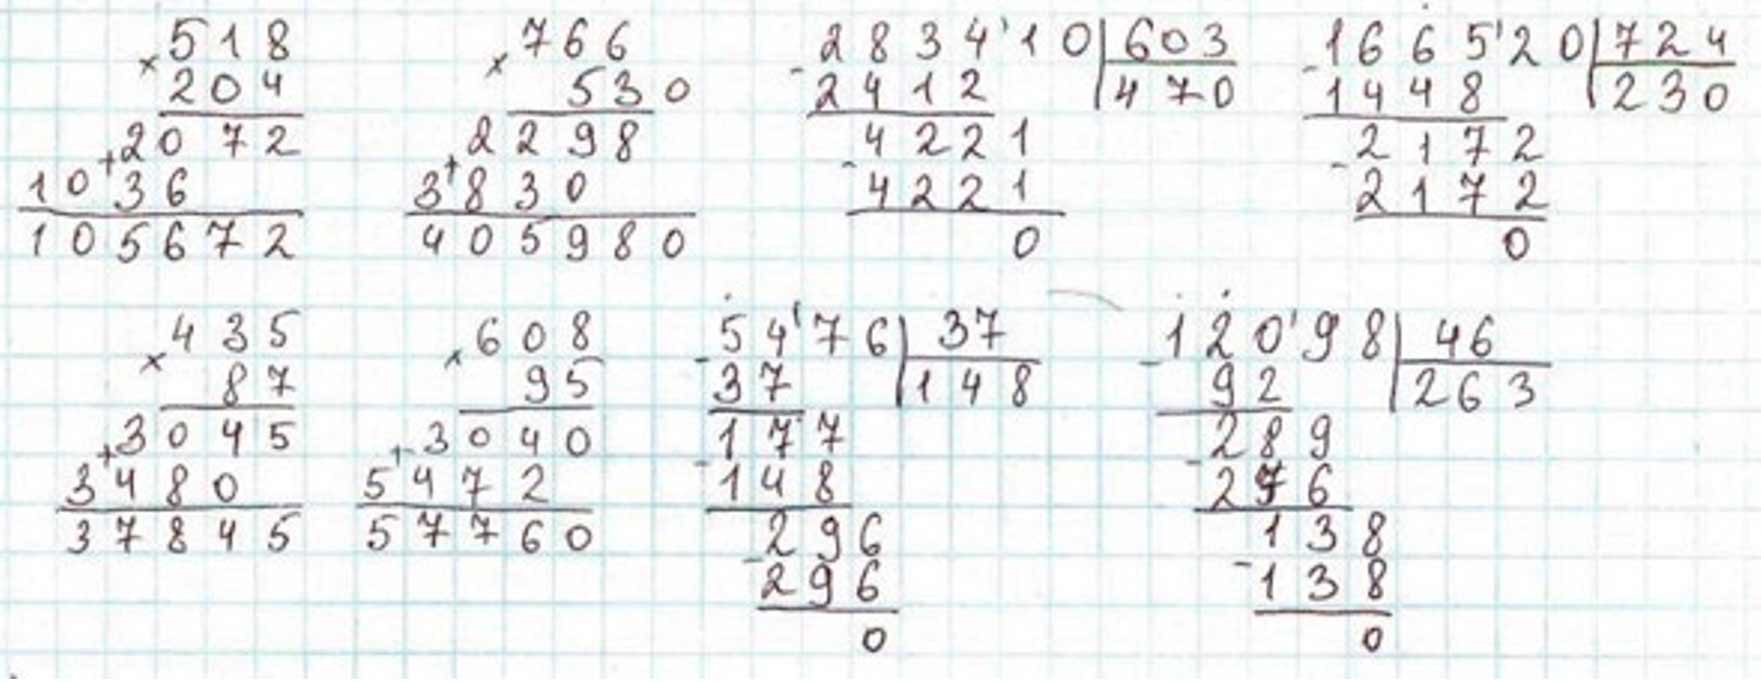 × 518
204
+ 2072
1036
105672
× 766
530
+ 2298
3830
405980
- 2834'10 | 603
2412 | 470
- 4221
4221
0
- 1665'20 | 724
1448 | 230
- 2172
2172
0
× 435
87
+ 3045
3480
37845
× 608
95
+ 3040
5472
57760
- 54'76 | 37
37 | 148
- 177
148
- 296
296
0
- 120'98 | 46
92 | 263
- 289
276
- 138
138
0